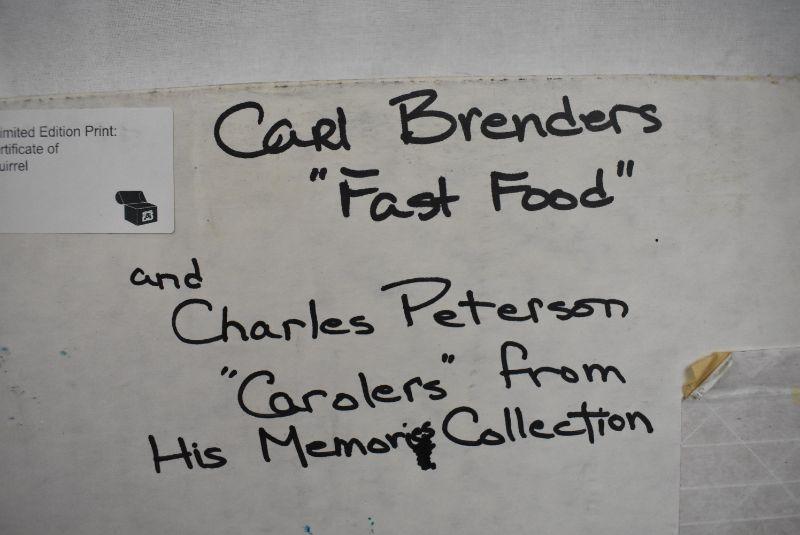 imited Edition Print:
rtificate of
uirrel
Carl Brenders
"Fast Food"
and
Charles Peterson
"Carolers" from
His Memories Collection